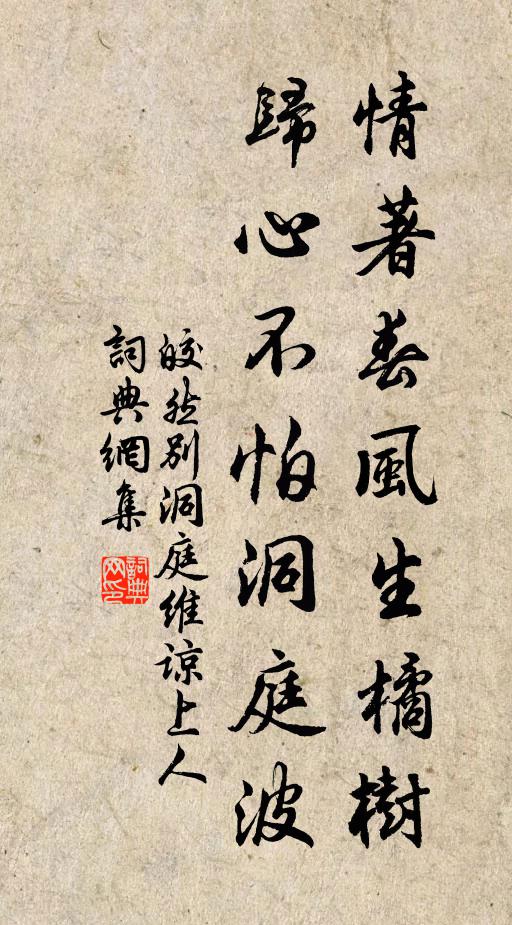 情著春風生橘樹
歸心不怕洞庭波
皎然別洞庭維諒上人
詞典網集
詞典網印